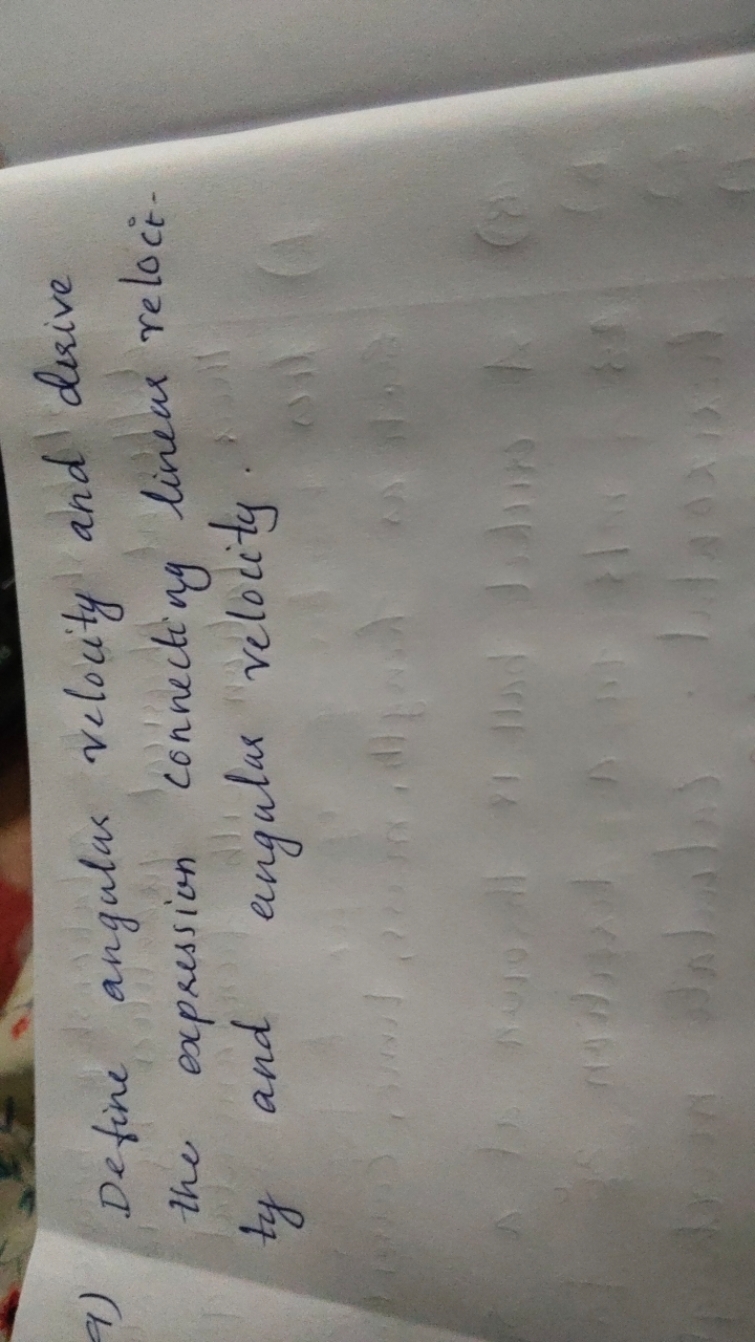 9) Define angular velocity and derive
the expression connecting linear veloci-
ty and angular velocity.